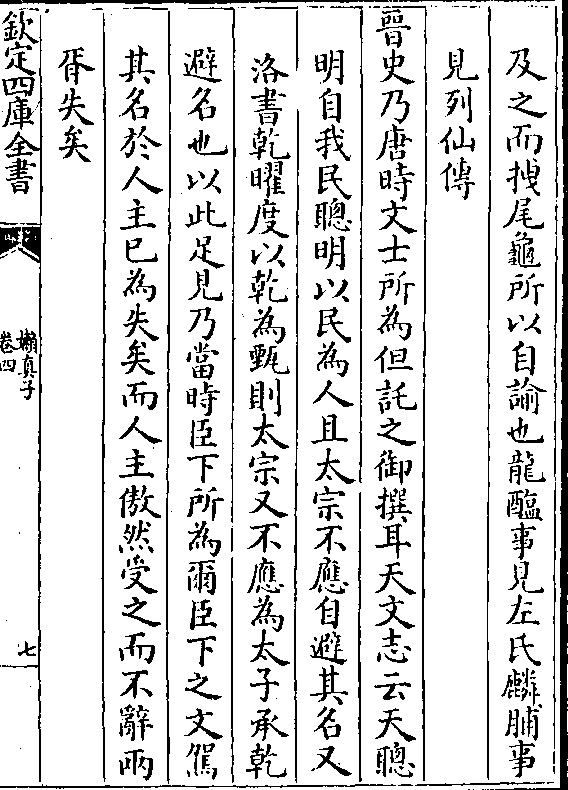 及之而拽尾龜所以自諭也龍醢事見左氏麟脯事
見列仙傳
晉史乃唐時文士所為但託之御撰耳天文志云天聰
明自我民聰明以民為人且太宗不應自避其名又
洛書乾曜度以乾為甄則太宗又不應為太子承乾
避名也以此足見乃當時臣下所為爾臣下之文駕
其名於人主已為失矣而人主傲然受之而不辭兩
胥失矣
欽定四庫全書
懶真子
卷四
七